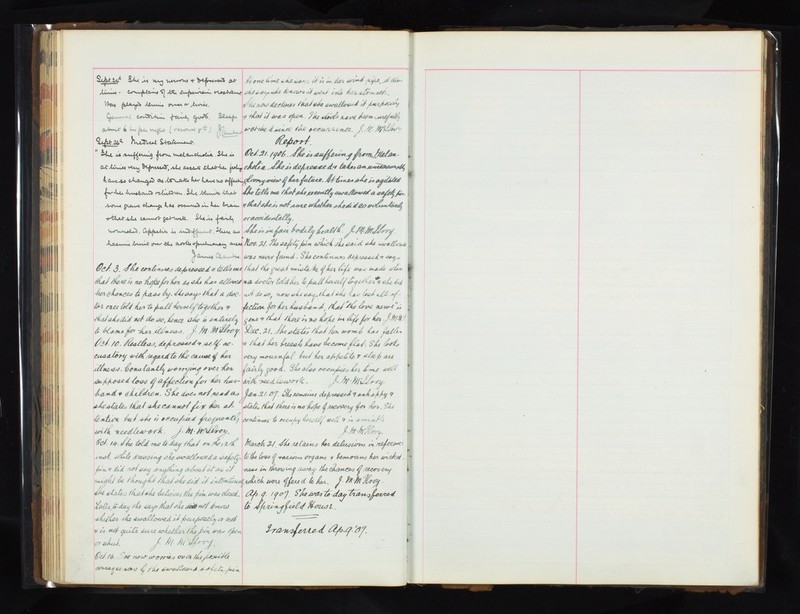 Sept 24th She is very nervous & depressed at
times. Complains of the
Has played tennis once or twice.
General condition fairly good. Sleeps
about 6 hrs per night
Sept 26th Medical Statement.
"She is suffering from melancholia. She is
at times very depressed, she asserts that her
have so changed as to make her have no affection
for her husband or children. She thinks that
some grave change has occurred in her brain
& that she cannot get well. She is fairly
nourished. Appetite is indifferent. There is
haemic bruit over the aortic & pulmonary areas"
James
Oct. 3. She continues depressed & tells me
that there is no hope for her as she has allowed
her chances to pass by. She says that a doc-
tor once told her to pull herself together &
that she did not do so, hence she is entirely
to blame for her illness. J. M. McIlroy.
Oct. 10. Restless, depressed & self ac-
cusatory with regard to the cause of her
illness. Constantly worrying over her
supposed loss of affection for her hus-
band & children. She does not read as
she states that she cannot fix her at-
tention but she is occupied frequently
with needlework. J. M. McIlroy.
Oct. 14. She told me to day that on the 12th
inst. while sewing she swallowed a safety
pin & did not say anything about it as it
might be thought that she did it intentionally
She states that she believes the pin was closed.
Later, to day she says that she does not know
whether she swallowed it purposely or not
& is not quite sure whether the pin was open
or shut. J. M. McIlroy.
Oct. 16. She now worries over the possible
consequences of the swallowed safety pin
At one time she says it is in her wind pipe, & then
she says she knows it went into her stomach.
She now declares that she swallowed it purposely
& that it was open. The stools have been carefully
watched since the occurrence. J. M. McIlroy
Report.
Oct. 21. 1906. She is suffering from Melan-
cholia. She is depressed & takes an unreasonably
gloomy view of her future. At times she is agitated
She tells me that she recently swallowed a safety pin
& that she is not sure whether she did so voluntarily
or accidentally.
She is in fair bodily health J. M. McIlroy.
Nov. 21. The safety pin which she said she swallowed
was never found. She continues depressed & says
that the great mistake of her life was made when
a doctor told her to pull herself together & she did
not do so, now she says that she has lost all af-
fection for her husband, that "the love nerve" is
gone & that there is no hope in life for her J.M.McI
Dec. 21. She states that her womb has fallen
& that her breasts have become flat. She looks
very mournful but her appetite & sleep are
fairly good. She also occupies her time well
with needlework. J. M. McIlroy.
Jan. 21. 07. She remains depressed & unhappy &
states that there is no hope of recovery for her. She
continues to occupy herself well &
J. M. McIlroy.
March 21. She retains her delusions in reference
to the loss of various organs & bemoans her wicked-
ness in throwing away the chances of recovery
which were offered to her. J. M. McIlroy.
Ap. 9. 1907 She was to day transferred
to Springfield House.
Transferred Ap. 9. '07.